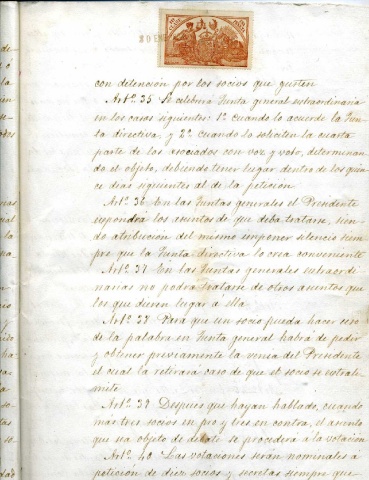 20 ENE
con detención por los socios que gusten
Artº 35 Se celebrará Junta general extraordinaria
en los casos siguientes: 1º Cuando lo acuerde la Jun-
ta directiva, y 2º cuando lo soliciten la cuarta
parte de los asociados con voz y voto, determinan-
do el objeto, debiendo tener lugar dentro de los quin-
ce dias siguientes al de la peticion.
Artº 36 En las Juntas generales el Presidente
expondrá los asuntos de que deba tratarse, sien-
do atribución del mismo imponer silencio siem-
pre que la Junta directiva lo crea conveniente
Artº 37 En las Juntas generales extraordi-
narias no podrá tratarse de otros asuntos que
los que dieren lugar á ella.
Artº 38 Para que un socio pueda hacer uso
de la palabra en Junta general habrá de pedir
y obtener préviamente la venia del Presidente
el cual la retirará caso de que el socio se extrali-
mite.
Artº 39 Despues que hayan hablado, cuando
mas tres socios en pró y tres en contra, el asunto
que sea objeto de debate se procederá á la votación
Artº 40 Las votaciones serán nominales á
petición de diez socios, y secretas siempre que